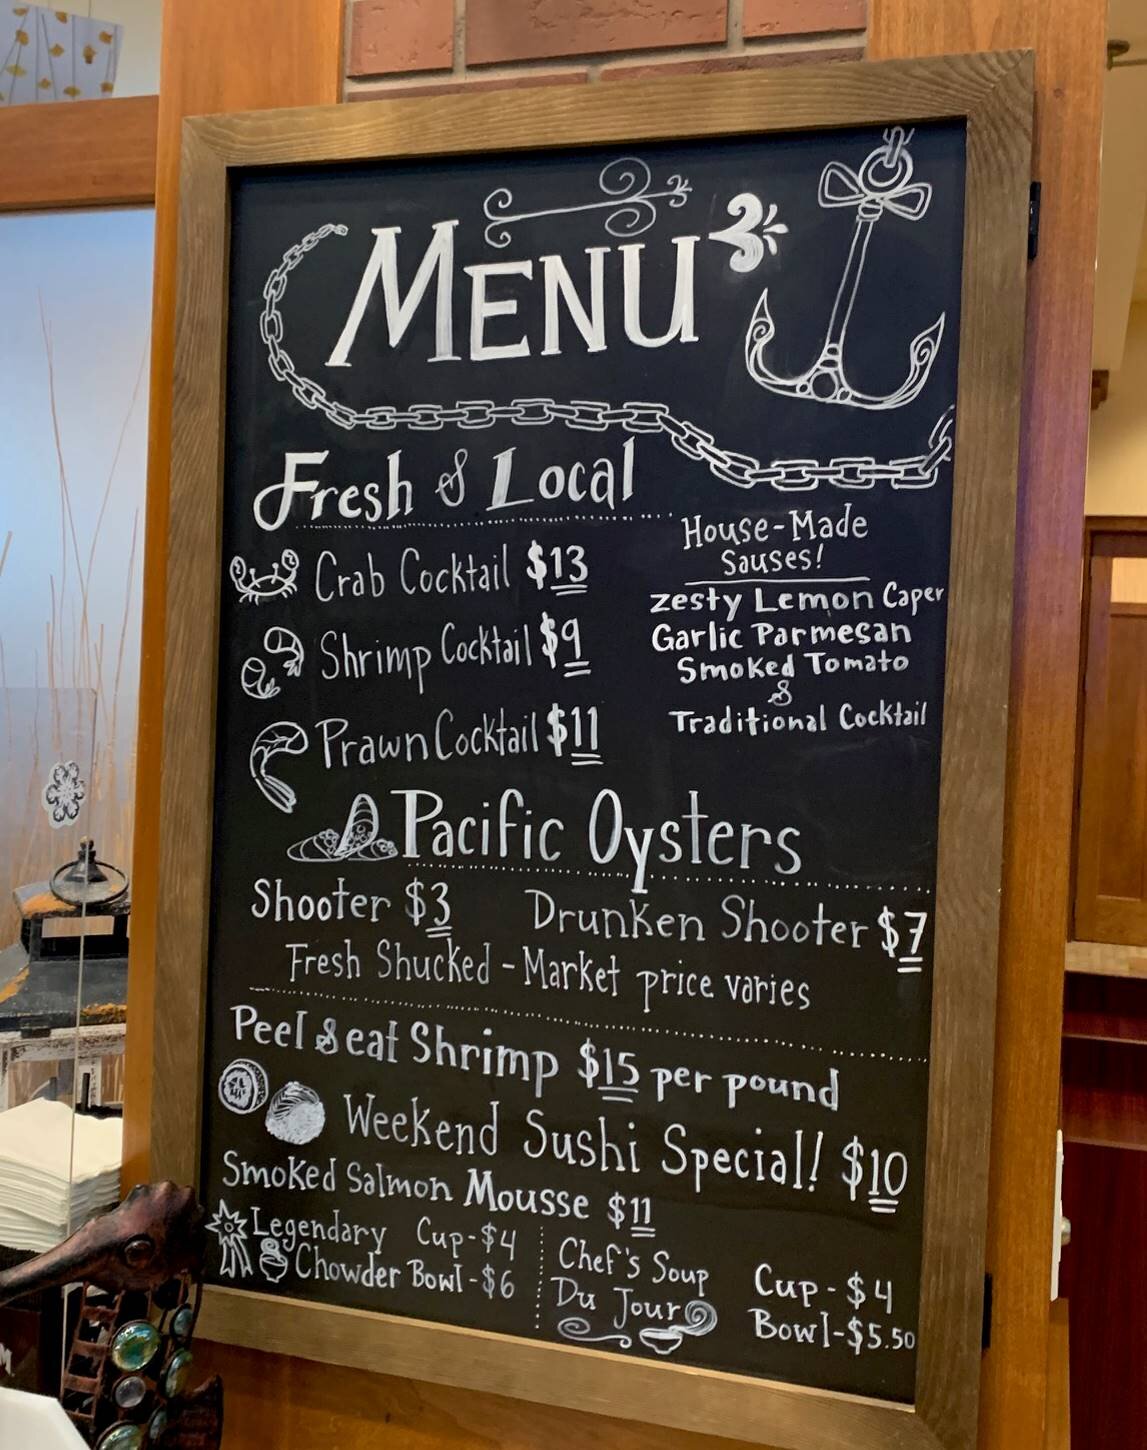 MENU
Fresh & Local
Crab Cocktail $13
Shrimp Cocktail $9
Prawn Cocktail $11
House-Made
Sauses!
zesty Lemon Caper
Garlic Parmesan
Smoked Tomato
&
Traditional Cocktail
Pacific Oysters
Shooter $3 Drunken Shooter $7
Fresh Shucked - Market price varies
Peel & eat Shrimp $15 per pound
Weekend Sushi Special! $10
Smoked Salmon Mousse $11
Legendary Cup-$4
Chowder Bowl-$6
Chef's Soup
Du Jour
Cup-$4
Bowl-$5.50